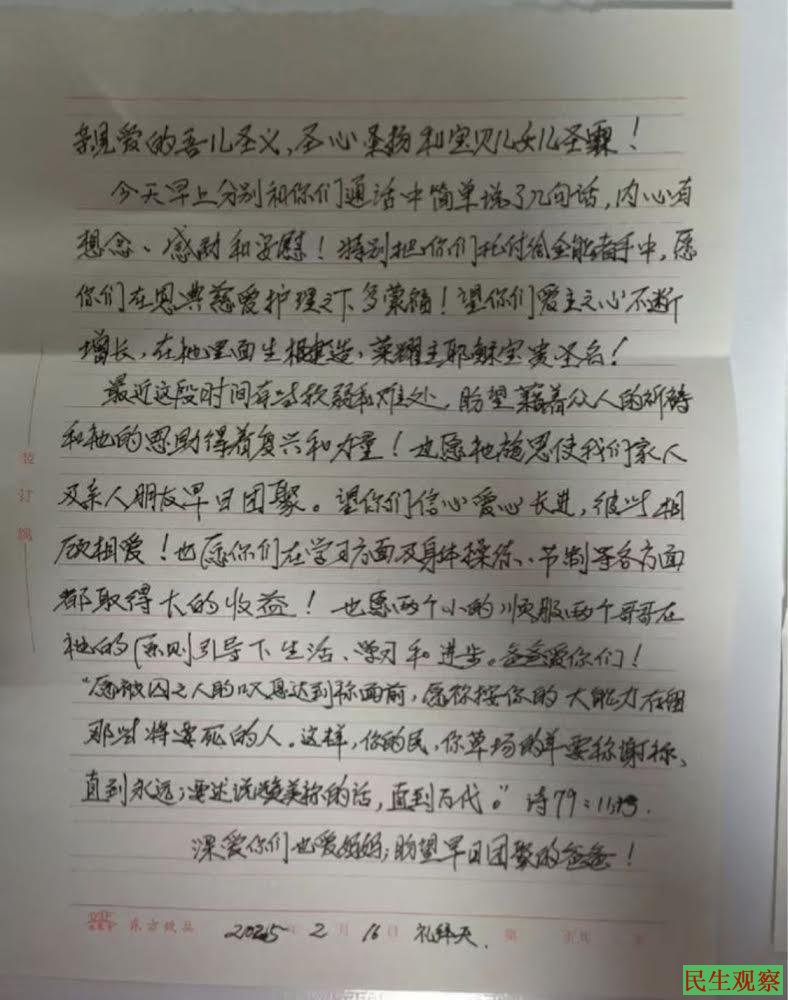 亲爱的吾儿圣义、圣心圣扬和宝贝儿女儿圣霖！
今天早上分别和你们通话中简单说了几句话，内心有
想念、感动和安慰！特别把你们托付给全能者手中，愿
你们在恩典慈爱护理之下多蒙福！望你们爱主之心不断
增长，在祂里面生根建造，荣耀主耶稣宝贵圣名！
最近这段时间有些软弱和难处，盼望藉着众人的祈祷
和祂的恩助得着复兴和力量！也愿祂施恩使我们家人
及亲人朋友早日团聚。望你们信心爱心长进，彼此相
顾相爱！也愿你们在学习方面及身体操练、节制等各方面
都取得大的收益！也愿两个小的顺服两个哥哥在
祂的原则引导下生活、学习和进步。爸爸爱你们！
“愿被囚之人的叹息达到祢面前，愿祢按你的大能力存留
那些将要死的人。这样，你的民，你草场的羊要称谢祢，
直到永远；要述说赞美祢的话，直到万代。”诗79：11,13.
深爱你们也爱妈妈；盼望早日团聚的爸爸！
装
订
线
东方纸品 2025年2月16日 礼拜天. 第 页
民生观察